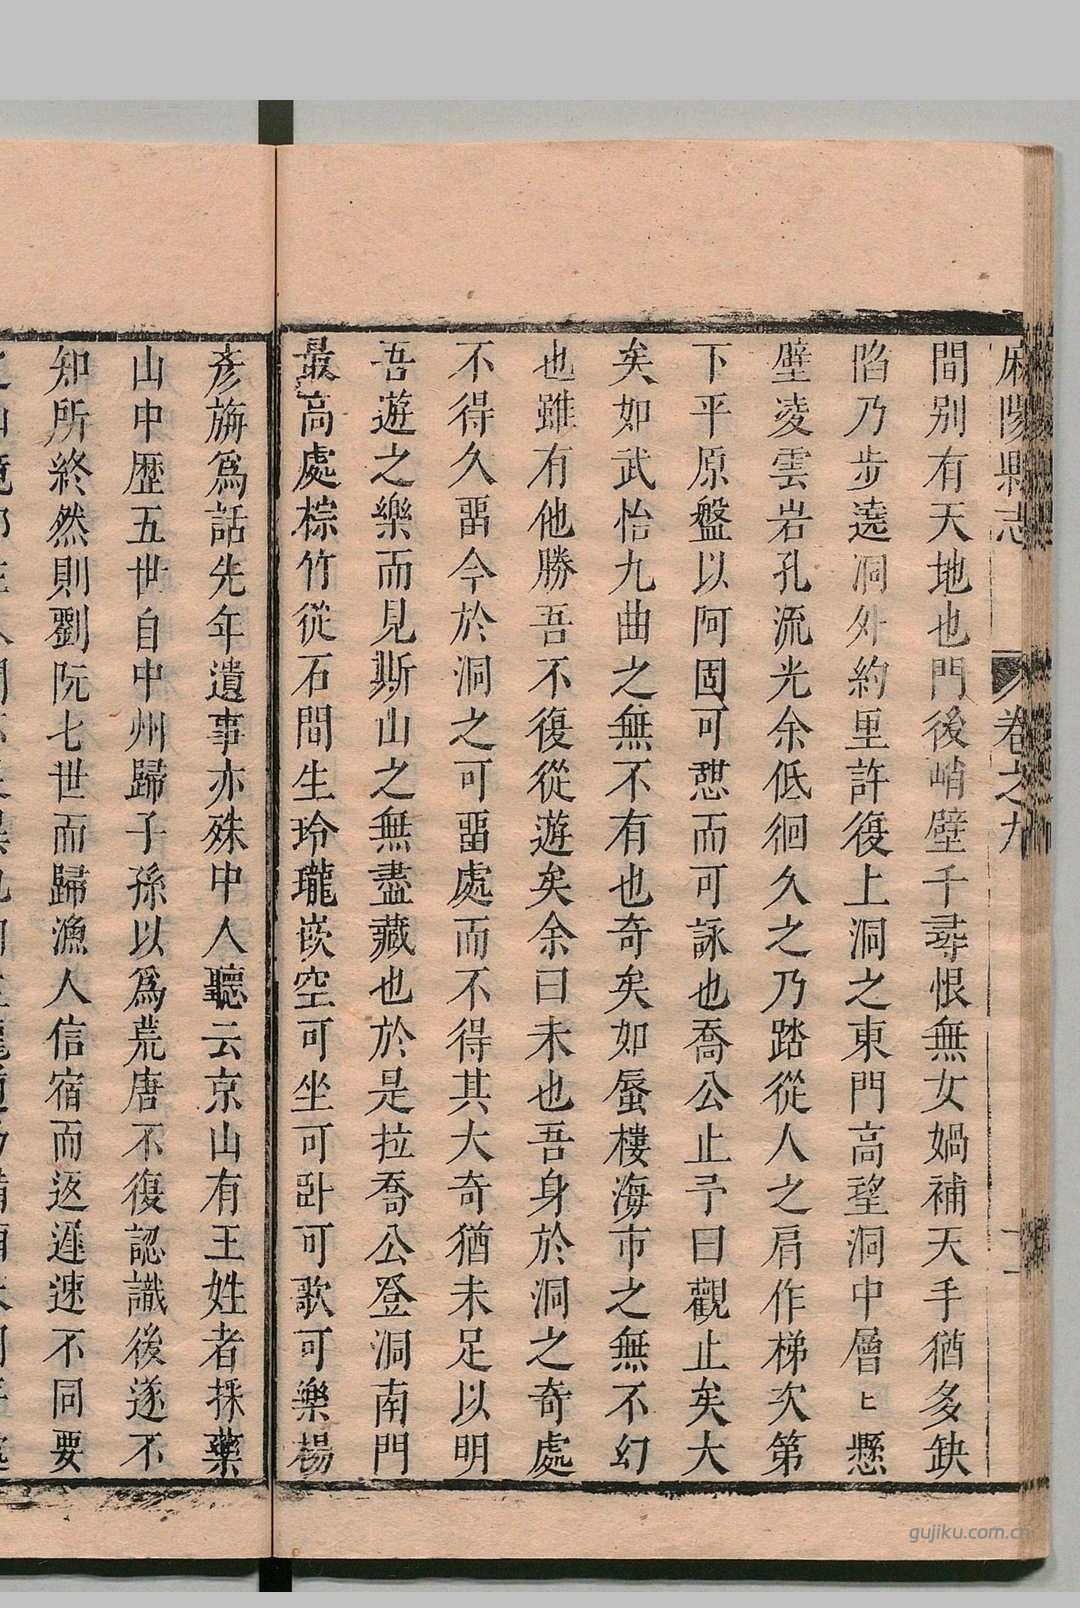 麻陽縣志
卷之九
間别有天地也門後峭壁千尋恨無女媧補天手猶多缺
陷乃步遶洞外約里許復上洞之東門高望洞中層㠪懸
壁凌雲岩孔流光余低徊久之乃踏從人之肩作梯次第
下平原盤以阿固可憇而可詠也喬公止予曰觀止矣大
矣如武怡九曲之無不有也奇矣如蜃樓海市之無不幻
也雖有他勝吾不復從遊矣余曰未也吾身於洞之奇處
不得久畱今於洞之可畱處而不得其大奇猶未足以明
吾遊之樂而見斯山之無盡藏也於是拉喬公登洞南門
最高處棕竹從石間生玲瓏嵌空可坐可卧可歌可樂楊
彦旃爲話先年遺事亦殊中人聽云京山有王姓者採藥
山中歷五世自中州歸子孫以爲荒唐不復認識後遂不
知所終然則劉阮七世而歸漁人信宿而返遲速不同要
gujiku.com.cn